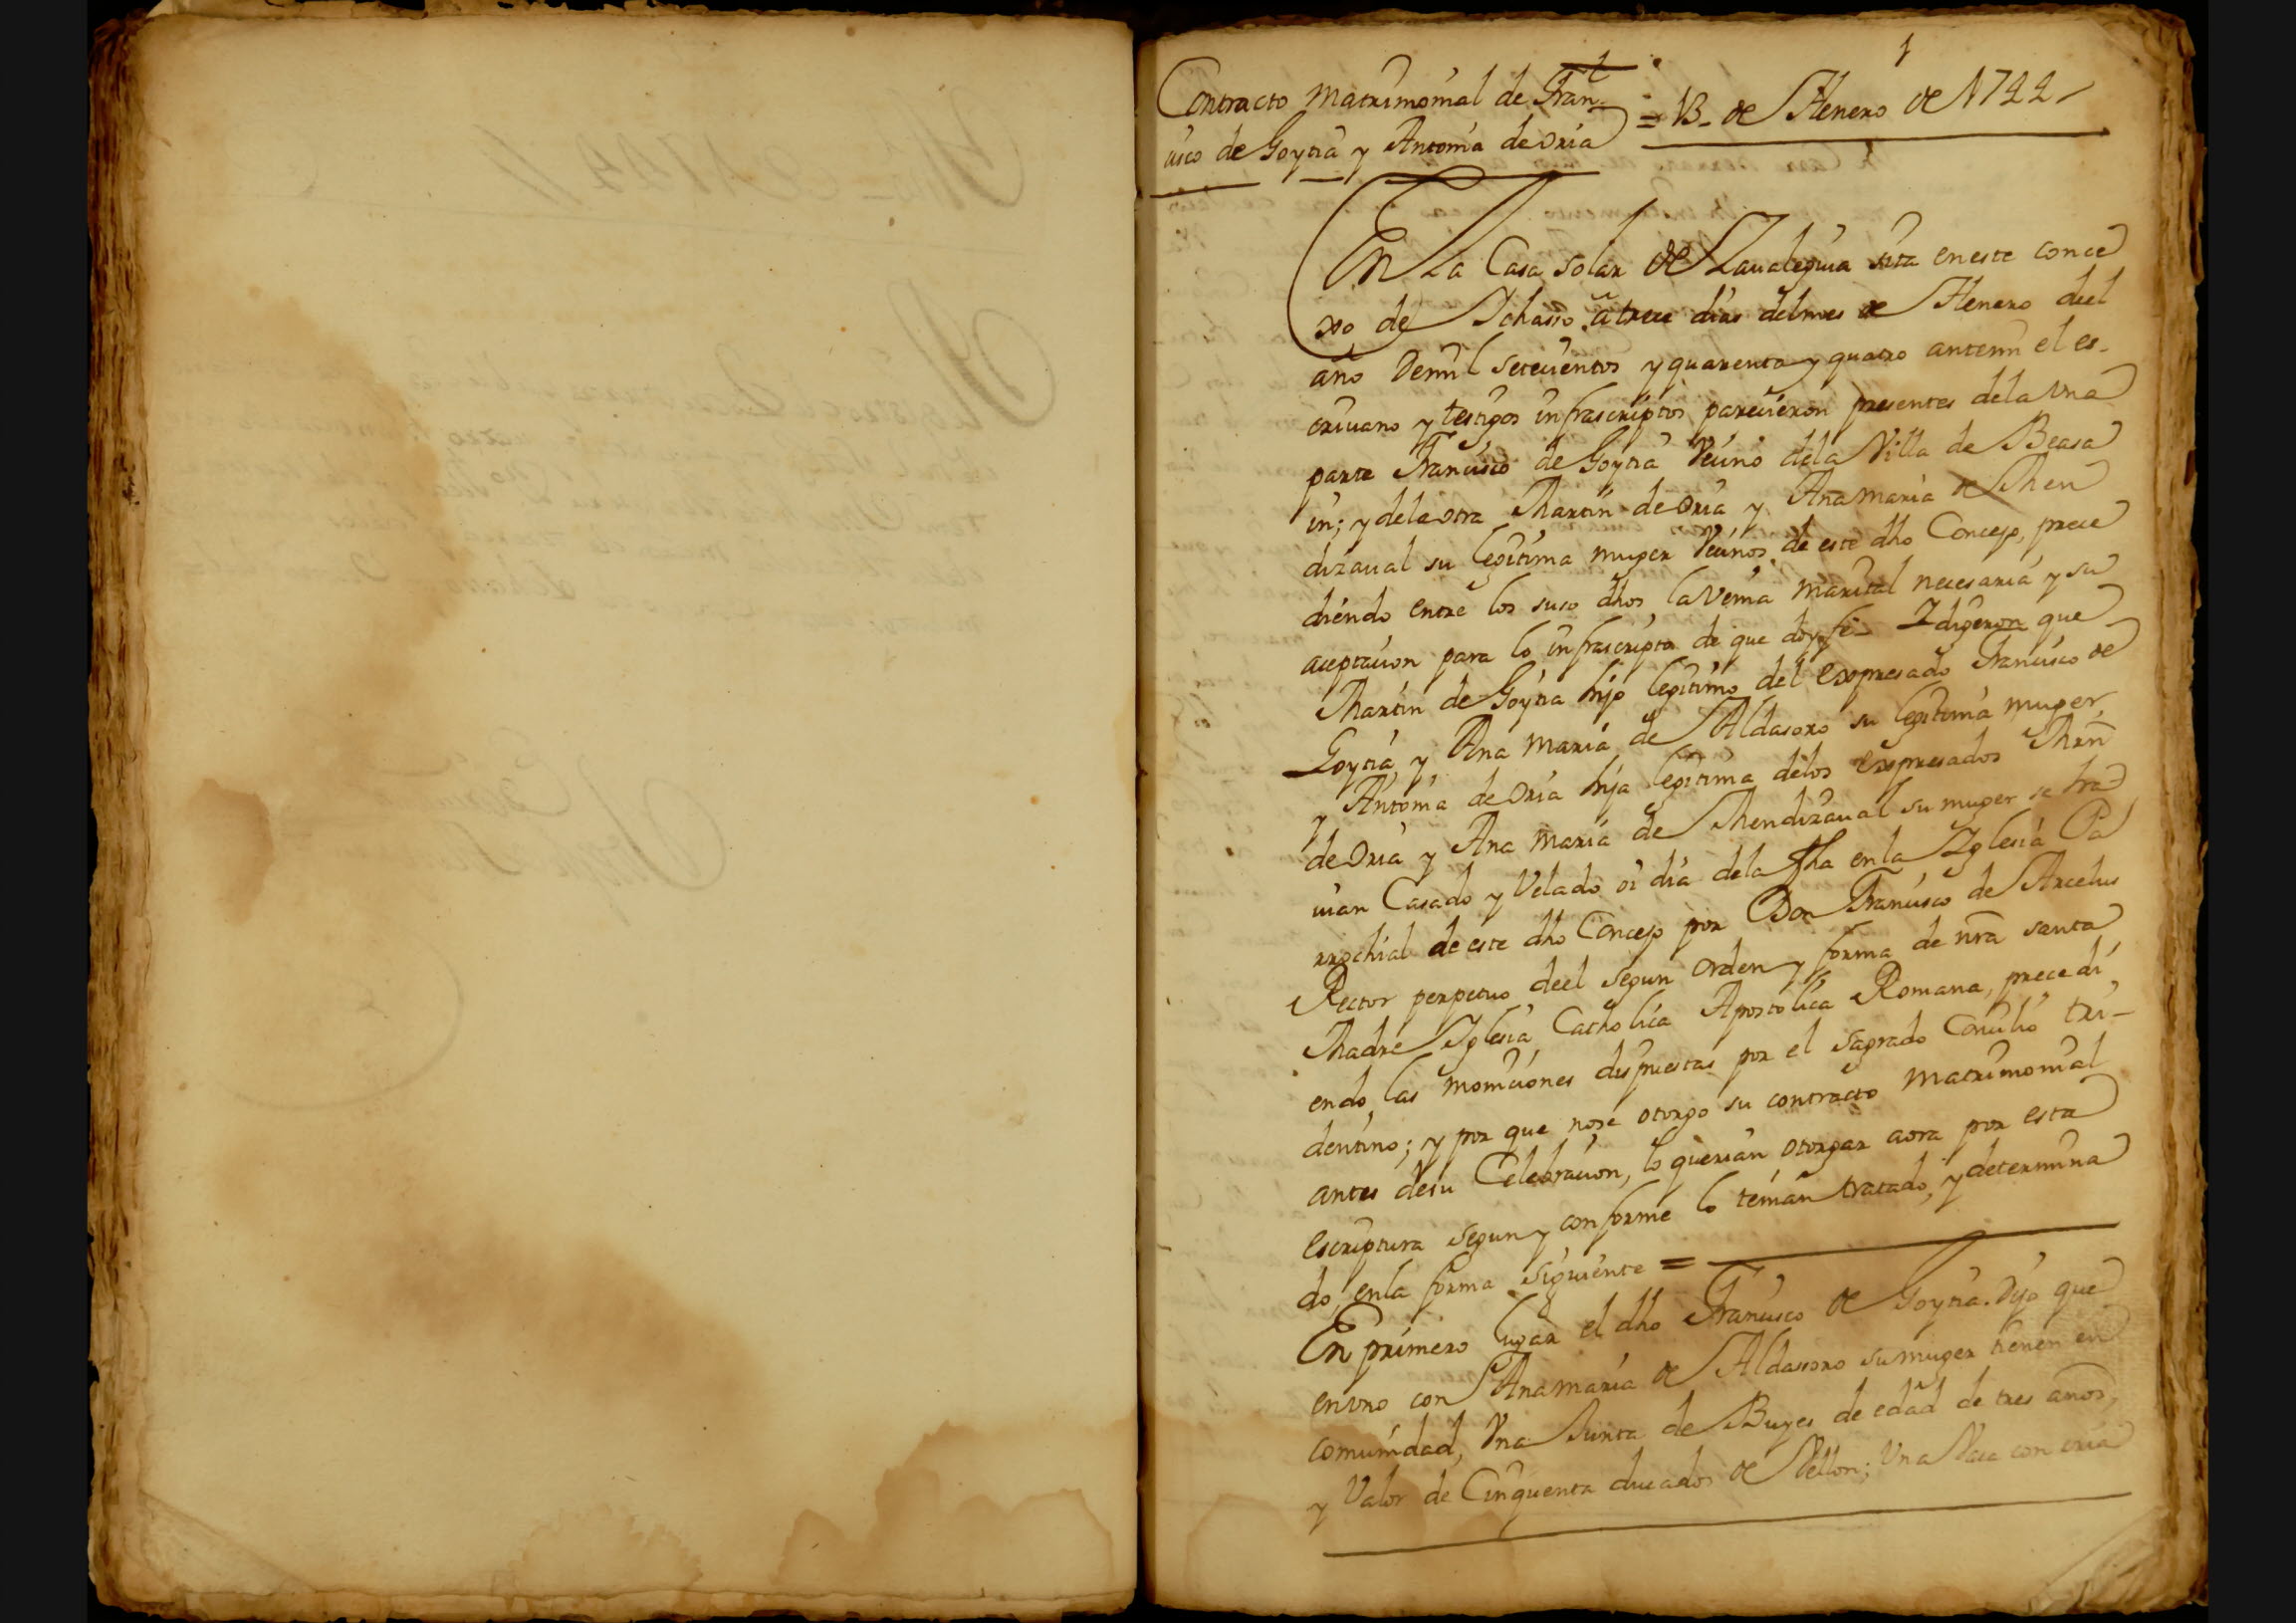 1
Contracto matrimonial de Fran-
cisco de Goytia y Antonia de Oria
= 13- de Henero de 1744-
En La Casa solar de Zaualegui sita eneste conce
xo de Ichasso, a trece dias delmes de Henero del
año Demil setecientos y quarenta y quatro antemi el es-
criuano y testigos infrascriptos parecieron presentes dela Vna
parte Francisco de Goytia Vecino dela Villa de Beasa
in; y dela otra Martin de Oria y Anamaria de Men
dizaual su legitima muger Vecinos de este dho Concejo, prece
diendo entre los suso dhos la Venia marital necesaria y su
aceptacion para lo infrascripto de que doy fe- I digeron que
Martin de Goytia hijo legitimo del expresado Francisco de
Goytia y Ana Maria de Aldasoro su legitima muger,
y Antonia de Oria hija legitima delos expresados Mrn
de Oria y Ana Maria de Mendizaual su muger se ha
uian Casado y Velado oi dia dela fha en la Iglesia Pa
rrochial de este dho Concejo por Don Francisco de Arcelus
Rector perpetuo deel segun orden y forma de nra santa
Madre Iglesia Catholica Apostolica Romana, precedi
endo las moniciones dispuestas por el sagrado Concilio tri-
dentino; y por que nose otorgo su contracto matrimonial
antes desu Celebracion, lo querian otorgar aora por esta
escriptura segun y conforme lo tenian tratado, y determina
do, enla forma siguiente =
En primero lugar el dho Francisco de Goytia. Dijo que
envno con Anamaria de Aldasoro su muger tienen en
comunidad, Vna Junta de Buyes de edad de tres años,
y Valor de Cinquenta ducados de Vellon; Vna Vaca con cria